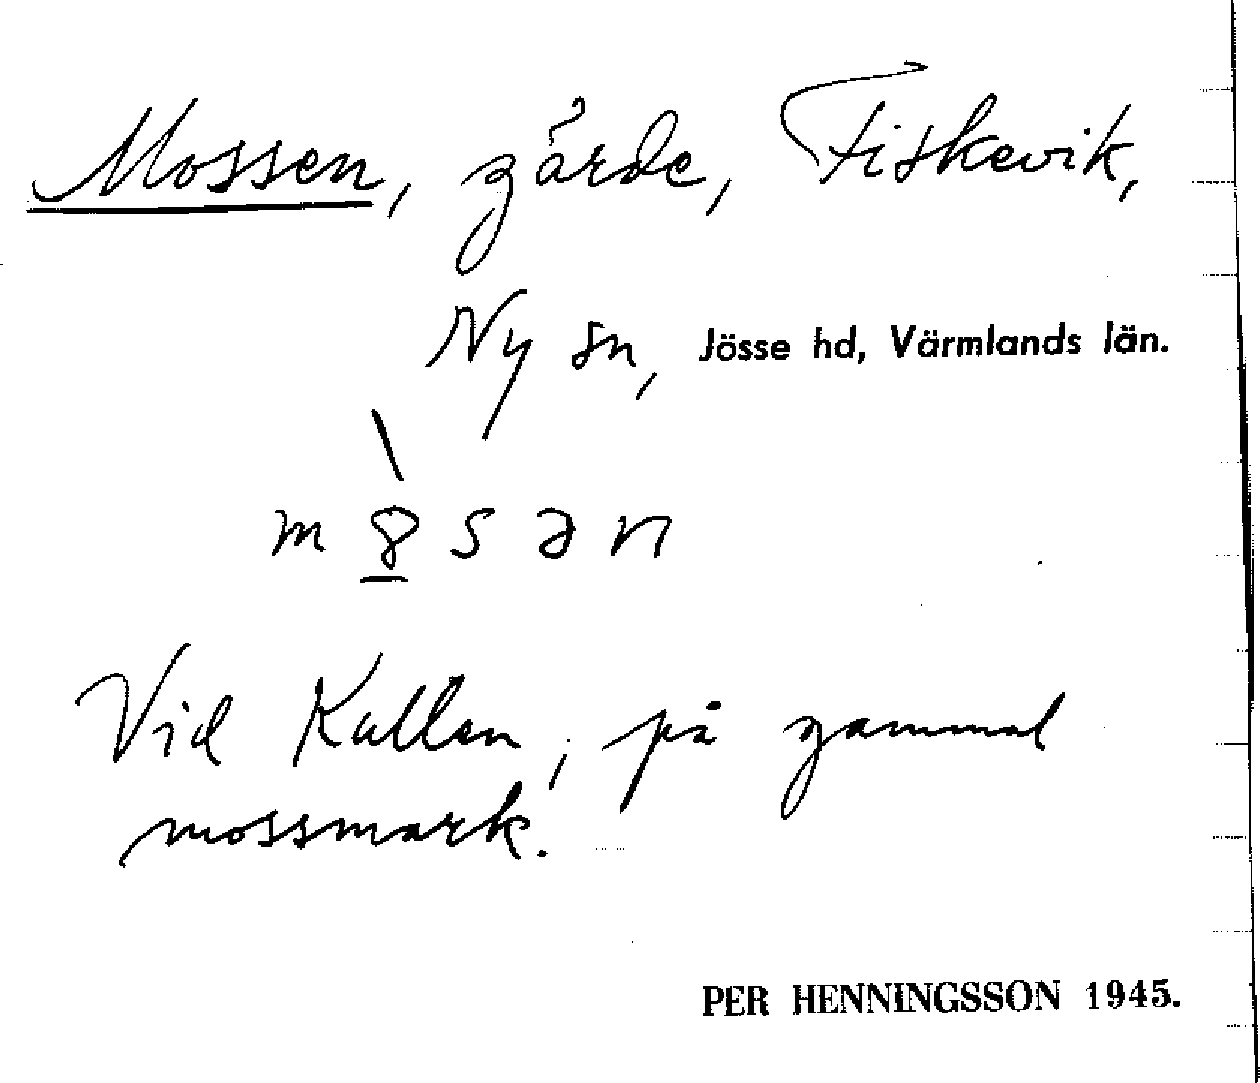 Mossen, gärde, Fiskevik,
Ny sn, Jösse hd, Värmlands län.
m8sən
Vid Kallen, på gammal
mossmark.
PER HENNINGSSON 1945.